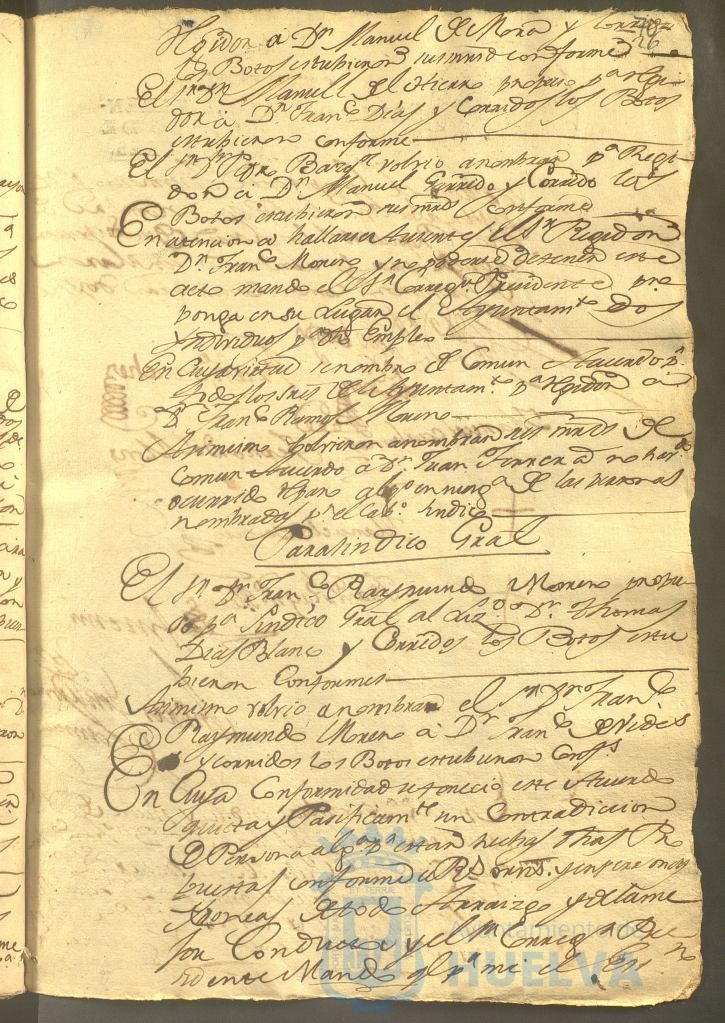 26
Regidor a Dn Manuel de Mora y Corridos
los Botos estubieron sus mrds conformes
El Sr Dn Manuel propuso pa regi
dor a Dn Franco Dias y Corridos los Botos
estubieron conformes
El Sr Dn volvio a nombrar pa Regi
dor a Dn Manuel Garrido y Corrido los
Botos estubieron sus mrds Conformes
En atencion a hallarse Ausente el Sr Regidor
Dn Franco Moreno y no poderse detener este
acto mando el Sr Corregr Presidente pro
ponga en su Lugar el Ayuntamto Dos
Yndividuos pa dho Empleo
En Cuia virtud se nombro de Comun Acuerdo pr
todos los sres del Ayuntamto pa Regidor a
Dn Franco Ramos Moreno
Asimismo bolvieron a nombrar sus mrds de
Comun Acuerdo a Dn Juan Ferrera no habdo
ocurrido reparo algo en ninga de las personas
nombradas pr el Cabo Sindico
Para Sindico Gral
El Sr Dn Franco Raymundo Moreno propu
so pa Sindico Gral al Lizdo Dn Thomas
Dias Blanco y Corridos los Botos estu
bieron Conformes
Asimismo volvio a nombrar el Sr Dn Franco
Raymundo Moreno a Dn Franco de Vides
y corridos los Botos estubieron Confs
En Cuya Conformidad se fenecio este Acuerdo
quieta y Pasificamte sin Contradiccion
de Persona alga pr estar hechas dhas Pro
puestas conforme a Rs orns. y en personas
Ydoneas de todo Arraigo y de
Conducta y el Sr Corregr Presi
dente Mando q pr mi el Esno
Ayuntamiento de
HUELVA